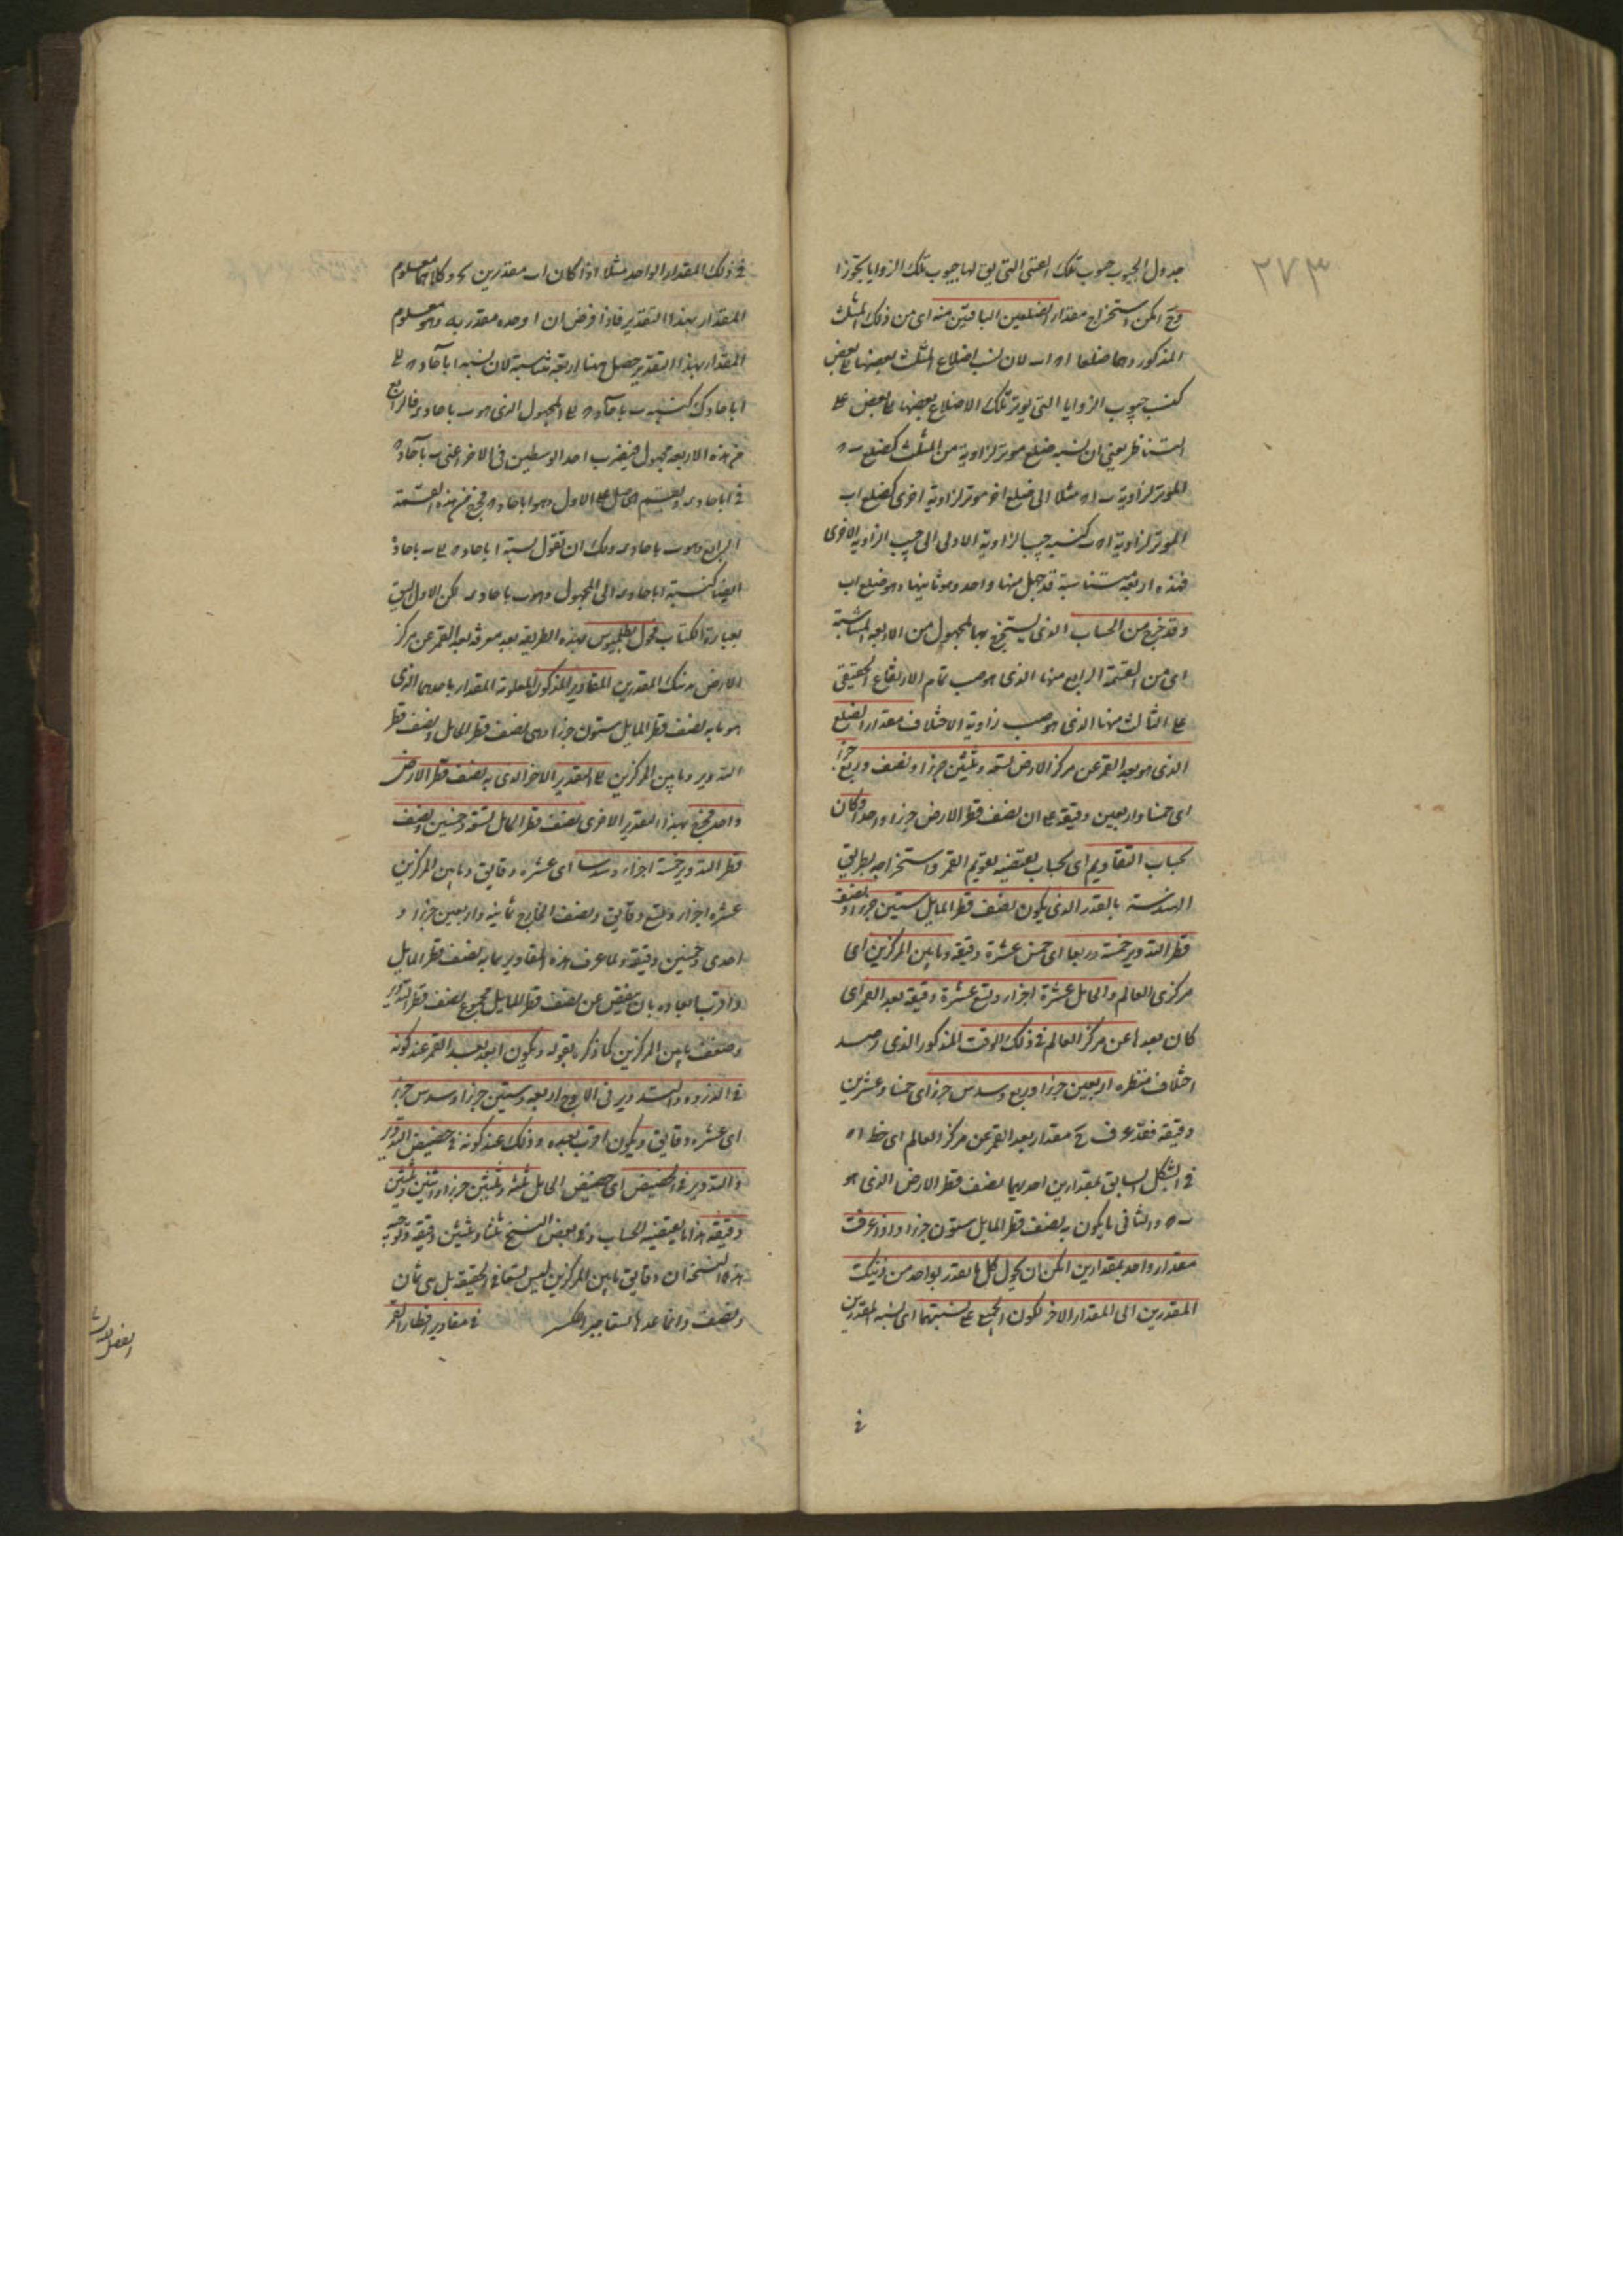 ٢٧٣
جدول الجيوب جيوب تلك القسى التى يق لها جيوب تلك الزوايا تجوزا
وح امكن استخراج مقدار الضلعين الباقيين منه اى من ذلك المثلث
المذكور وهما ضلعا اه اب لان نسب اضلاع المثلث بعضها الى بعض
كنسب جيوب الزوايا التى يوتر تلك الاضلاع بعضها الى بعض على
التناظر يعنى ان نسبة ضلع موتر لزاوية من المثلث كضلع ب ه
الموتر لزاوية ب ا ه مثلا الى ضلع اخر موتر لزاوية اخرى كضلع اب
الموتر لزاوية ا ه ب كنسبة جيب الزاوية الاولى الى جيب الزاوية الاخرى
فهذه اربعة متناسبة قد جهل منها واحد وهو ثانيها وهو ضلع اب
وقد خرج من الحساب الذى يستخرج بها المجهول من الاربعة المتناسبة
اى من القسمة الرابع منها الذى هو جيب تمام الارتفاع الحقيقى
على الثالث منها الذى هو جيب زاوية الاختلاف مقدار الضلع
الذى هو بعد القمر عن مركز الارض تسعة وثلثين جزءا ونصف وربع جزء
اى خمسا واربعين دقيقة على ان نصف قطر الارض جزء واحد وكان
بحساب التقاويم اى بحساب يقتضيه تقويم القمر واستخراجه بطريق
الهندسة بالقدر الذى يكون نصف قطر المايل ستين جزءا ونصف
قطر التدوير خمسة وربعا اى خمس عشرة دقيقة وما بين المركزين اى
مركزى العالم والحامل عشرة اجزاء وتسع عشرة دقيقة بعد القمر اى
كان بعدها عن مركز العالم فى ذلك الوقت المذكور الذى رصد
اختلاف منظره اربعين جزءا وربع وسدس جزء اى خمسا وعشرين
دقيقة فقد عرف ح مقدار بعد القمر عن مركز العالم اى خط اه
فى الشكل السابق بمقدارين احديهما نصف قطر الارض الذى هو
ب ه والثانى ما يكون به نصف قطر المايل ستون جزءا واذا عرفت
مقدار واحد بمقدارين امكن ان يحول كل ما يقدر بواحد من ذينك
المقدرين الى المقدار الاخر لكون الجميع على نسبتهما اى نسبة المقدرين
فى
فى ذلك المقدار الواحد مثلا اذا كان اب مقدرين وكلاهما معلوم
المقدار بهذا التقدير فاذا فرض ان ا وحده مقدر به وهو معلوم
المقدار بهذا التقدير حصل هنا اربعة متناسبة لان نسبة
من هذه الاربعة مجهول فيضرب احد الوسطين فى الاخر اعنى
ويقسم الحاصل على الاول
الرابع وهو ولك ان تقول نسبة
ايضا كنسبة الى المجهول وهو لكن الاول اليق
بعبارة الكتاب فحول بطلميوس بهذه الطريقة بعد معرفة بعد القمر عن مركز
الارض بذينك المقدرين المقادير المذكورة المعلومة المقدار باحدهما الذى
هو ما به نصف قطر المايل ستون جزءا وهى نصف قطر الحامل ونصف قطر
التدوير وما بين المركزين على التقدير الاخر الذى به نصف قطر الارض
واحد فخرج بهذا التقدير الاخرى نصف قطر المايل تسعة وخمسين ونصف
قطر التدوير خمسة اجزاء وسدسا اى عشرة دقايق وما بين المركزين
عشرة اجزاء وتسع دقايق ونصف الخارج ثمانية واربعين جزءا و
احدى وخمسين دقيقة ولما عرف هذه المقادير بما به نصف قطر المايل
واقرب ابعاده بان ينقص عن نصف قطر المايل مجموع نصف قطر التدوير
وضعف ما بين المركزين كما ذكره بقوله ويكون ابعد بعد القمر عند كونه
فى الذروة والتدوير فى الاوج اربعة وستين جزءا وسدس جزء
اى عشرة دقايق ويكون اقرب بعده وذلك عند كونه فى حضيض التدوير
والتدوير فى الحضيض اى حضيض الحامل ثلثة وثلثين جزءا واثنين وثلثين
دقيقة هذا ما يقتضيه الحساب وفى بعض النسخ ثلثا وثلثين دقيقة وتوجيه
هذه النسخة ان دقايق ما بين المركزين ليس تسعا فى الحقيقة بل هى ثمان
ونصف وانما عدها تسعا جبرا للكسر فى مقادير اقطار القمر
الفصل الثالث